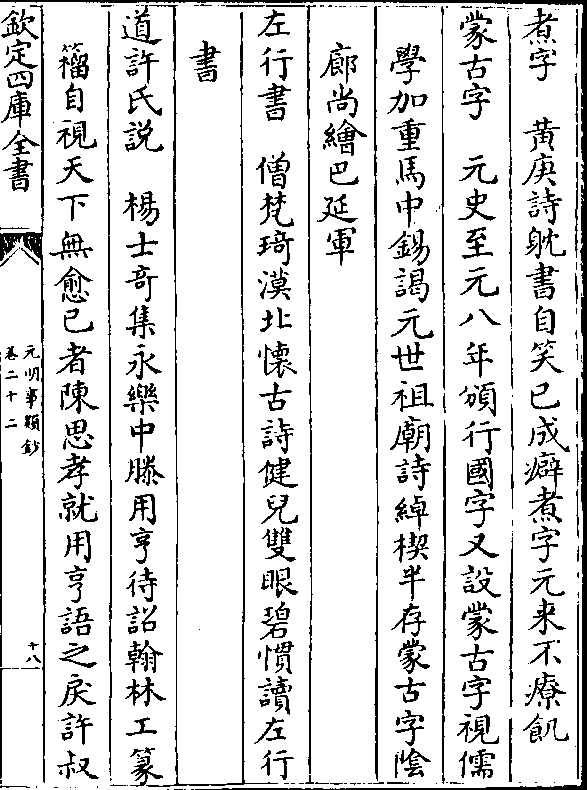 煮字　黄庚詩躭書自笑已成癖煮字元来不療飢
蒙古字　元史至元八年頒行國字又設蒙古字視儒
學加重馬中錫謁元世祖廟詩綽楔半存蒙古字隂
廊尚繪巴延軍
左行書　僧梵琦漠北懐古詩健兒雙眼碧慣讀左行
書
道許氏説　楊士竒集永樂中滕用亨待詔翰林工篆
籕自視天下無愈已者陳思孝就用亨語之戾許叔
欽定四庫全書
元明事類鈔
卷二十二
十八